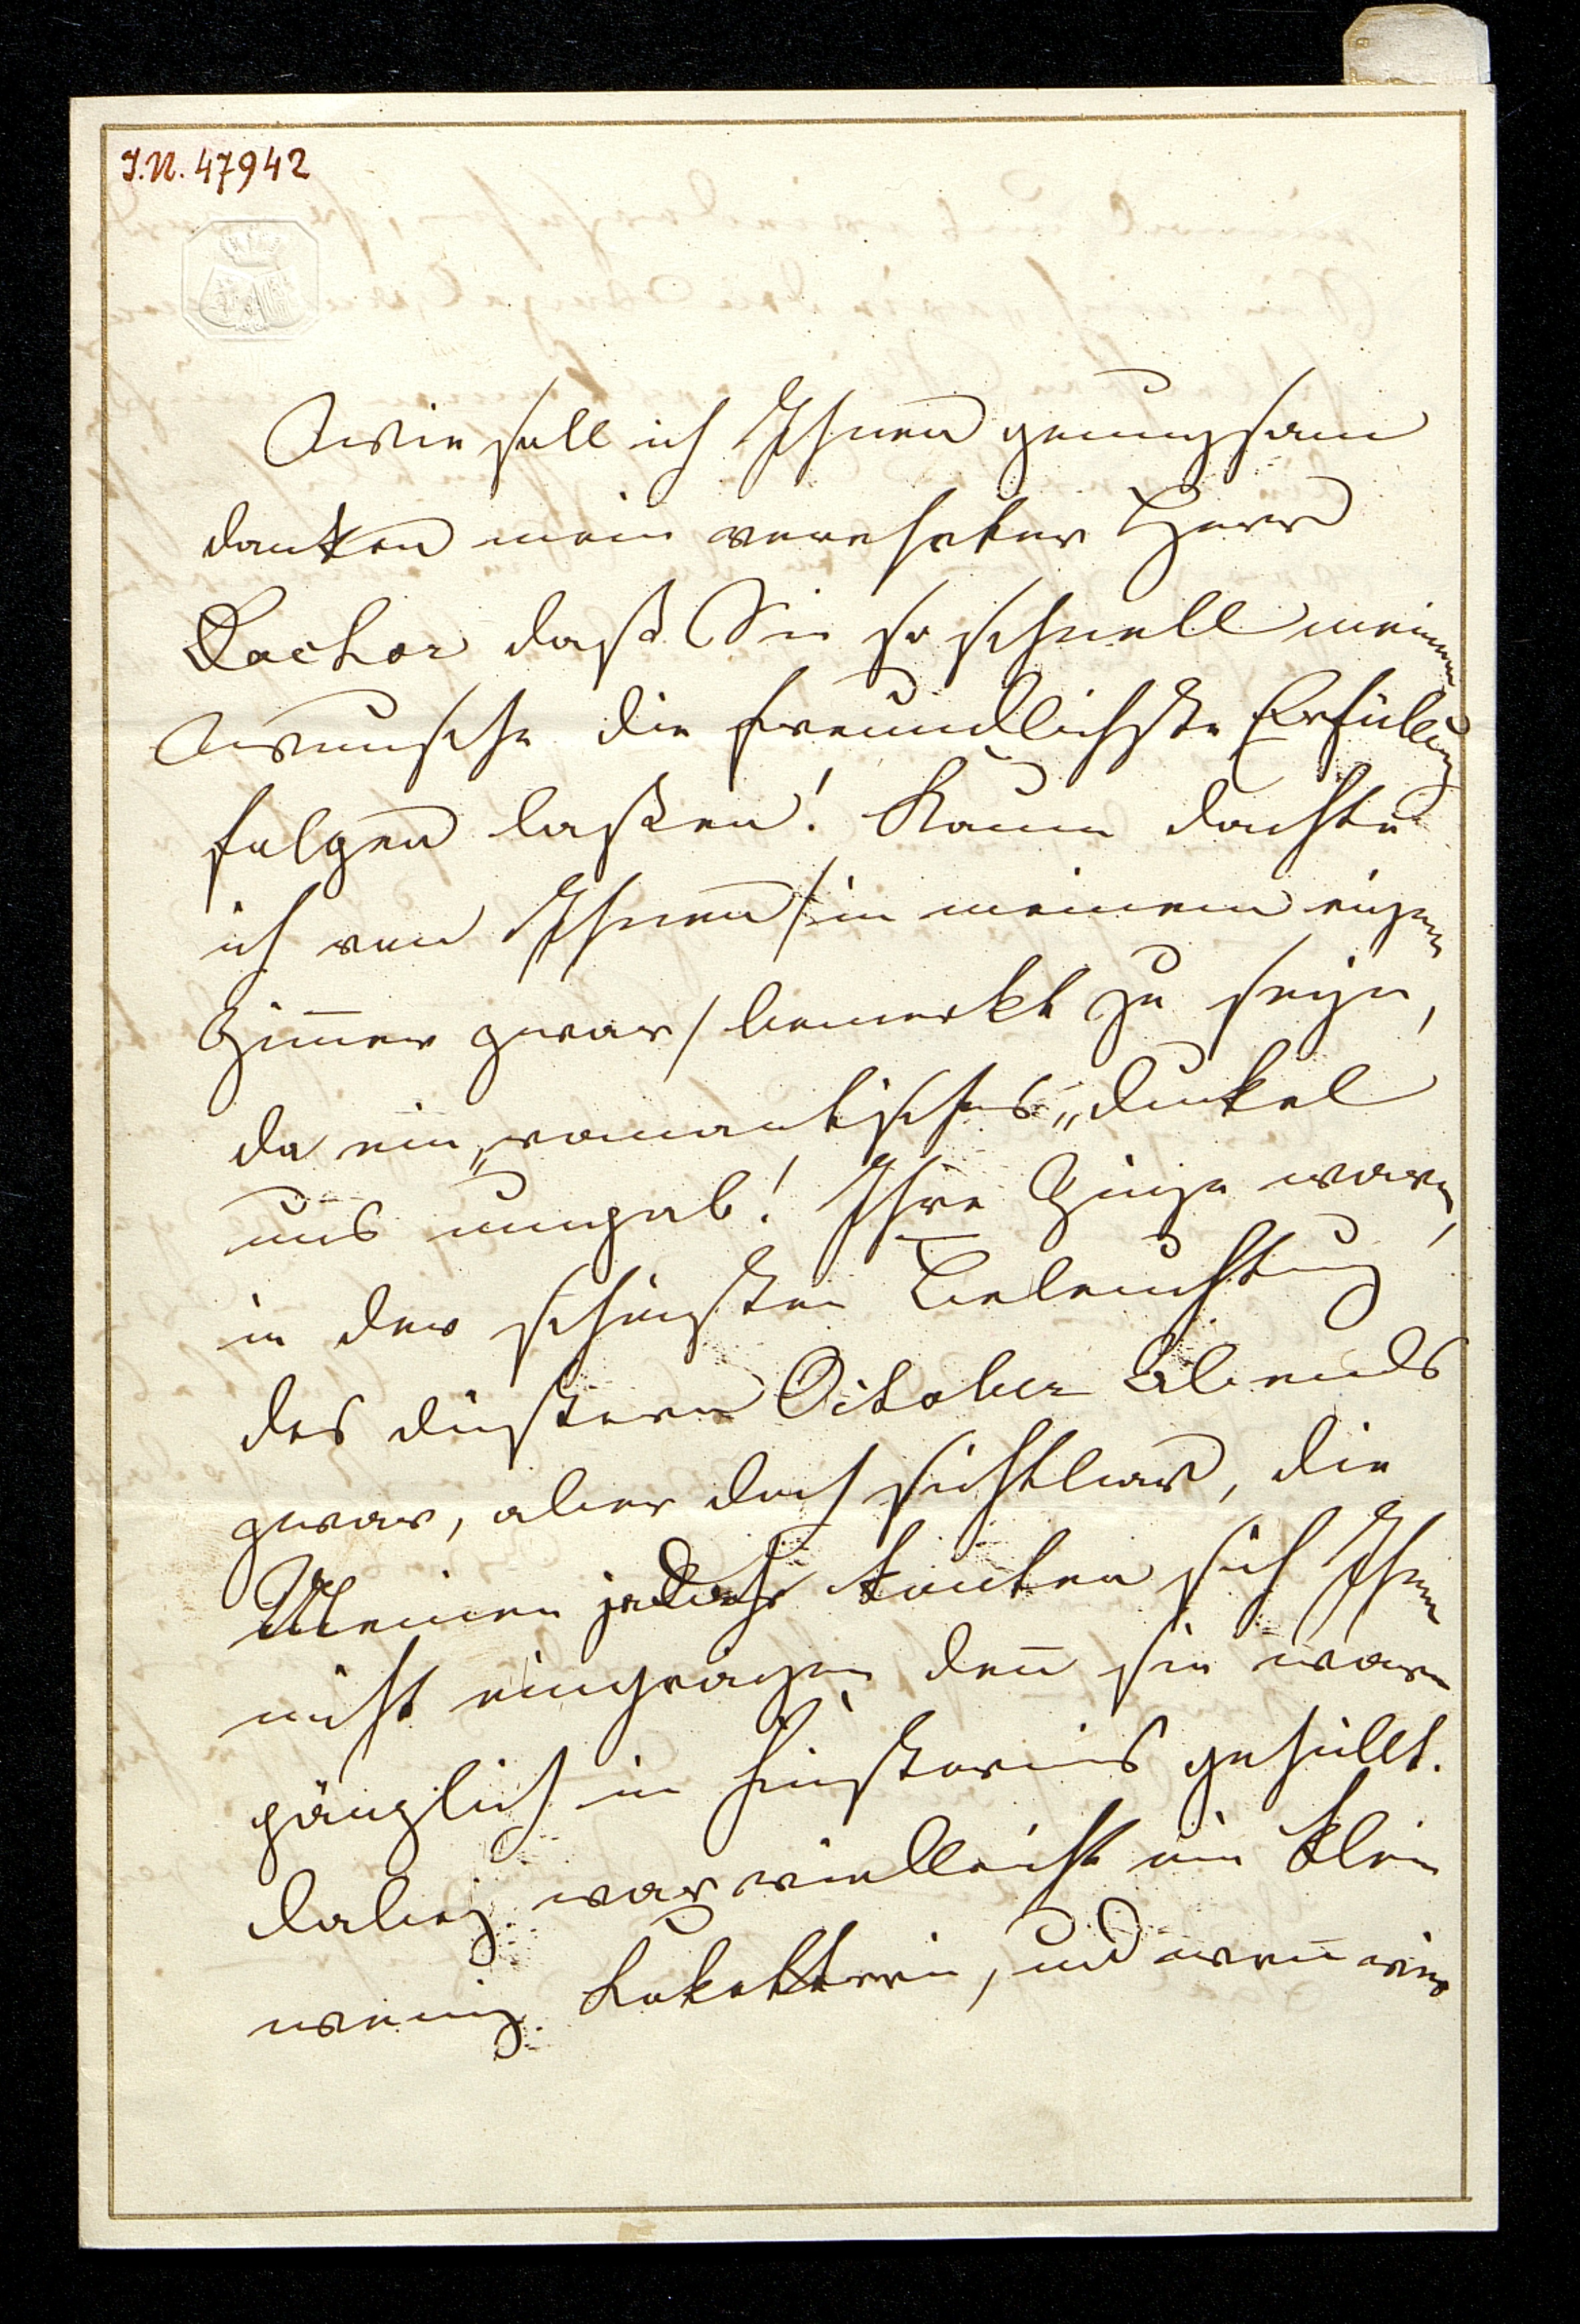 I.N. 47942
Wie soll ich Ihnen genugsam
danken mein verehrter Herr
Doctor daß Sie so schnell meinem
Wunsche die freundlichste Erfüllung
folgen laßen! Kaum dachte
ich von Ihnen /in meinem eigenen
Zimmer zwar/ bemerkt zu seyn,
da ein „romantisches„ dunkel
uns umgab! Ihre Züge waren,
in der schönsten Beleuchtung
des düstern October Abends
zwar, aber doch sichtbar, die
Meinen jedoch konten sich Ihnen
nicht einprägen deñ sie waren
gänzlich in Finsterniß gehüllt.
dabey war vielleicht ein klein
wenig Koketterie, und weñ wir